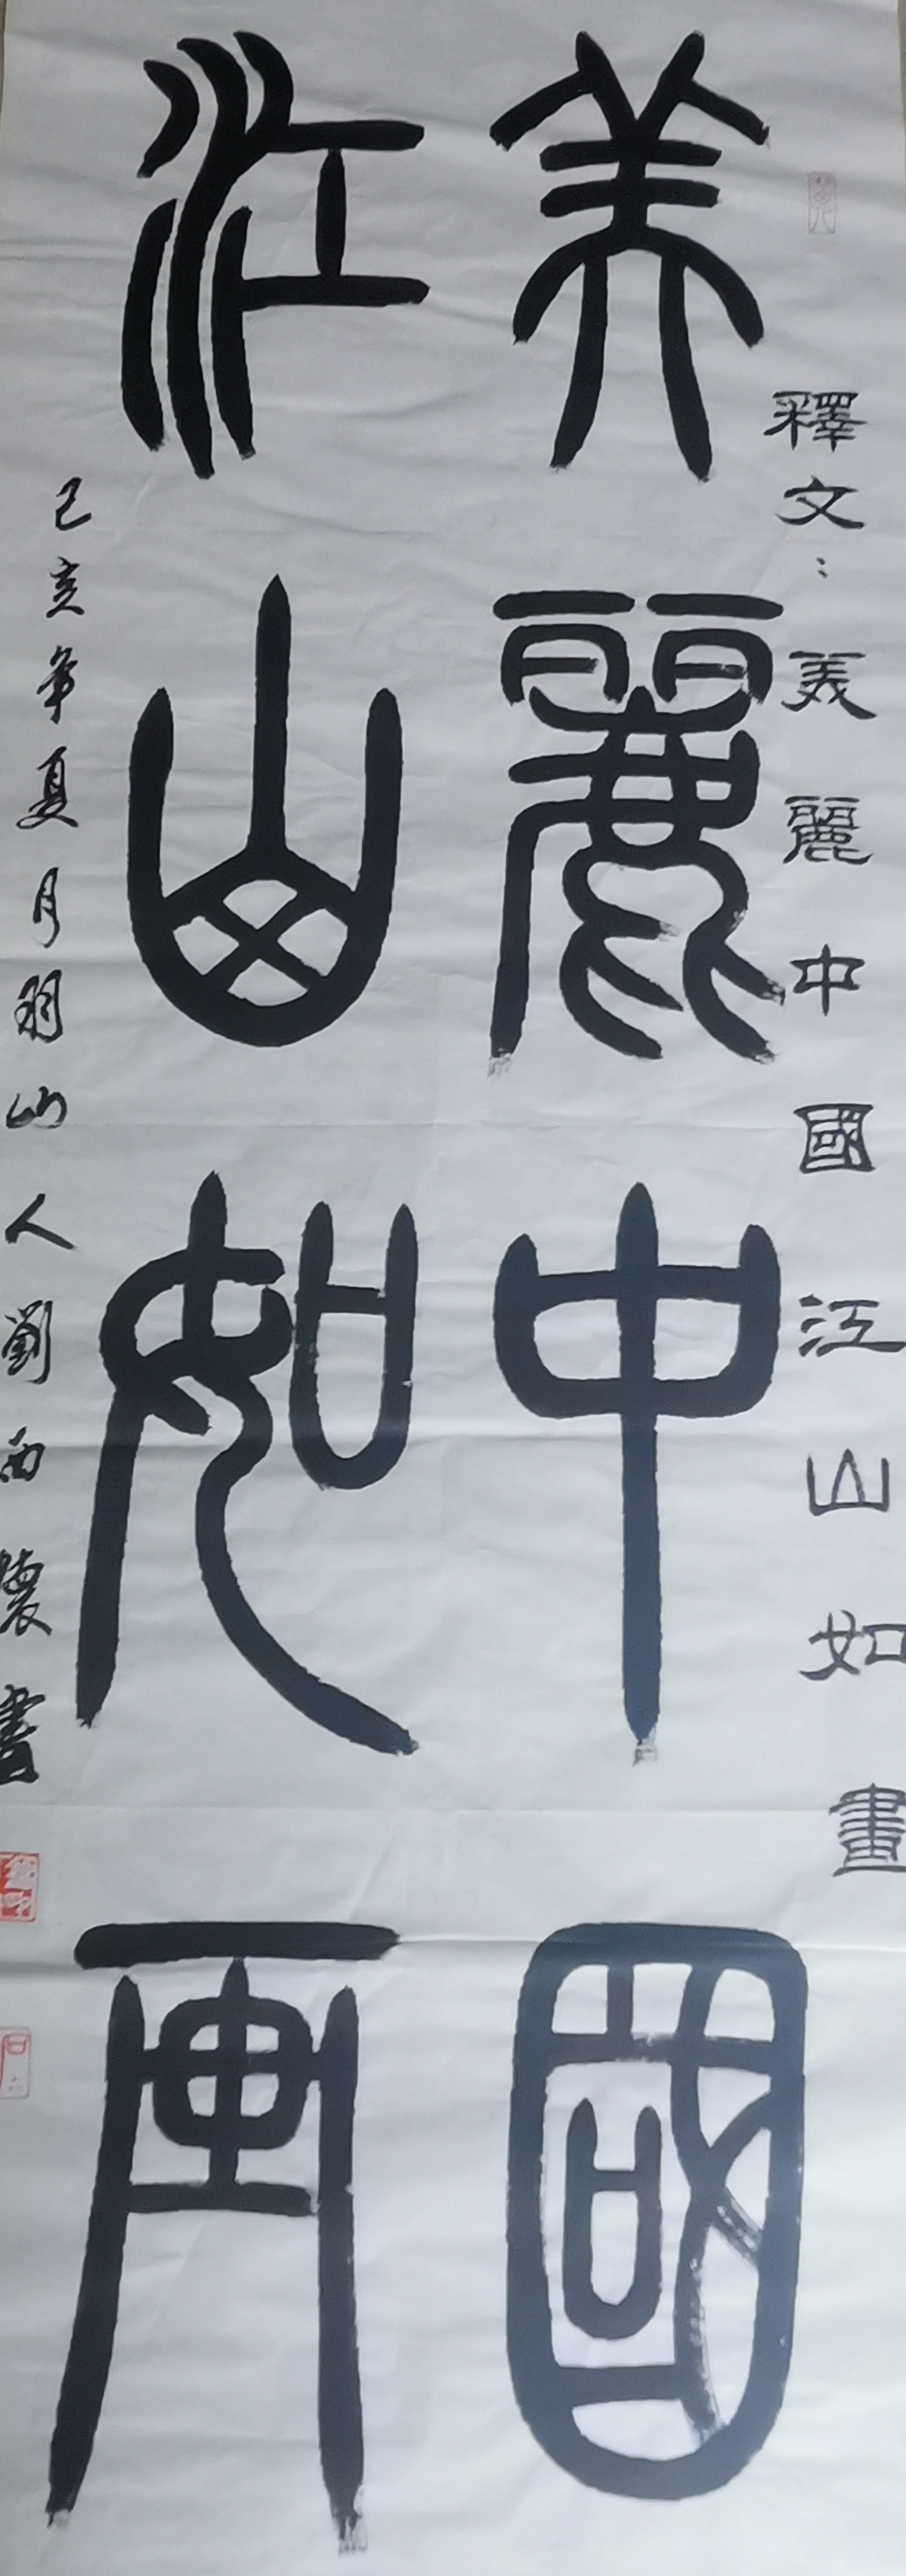 釋文：美麗中國江山如畫
美麗中國
江山如畫
己亥年夏月羽山人劉西懷書